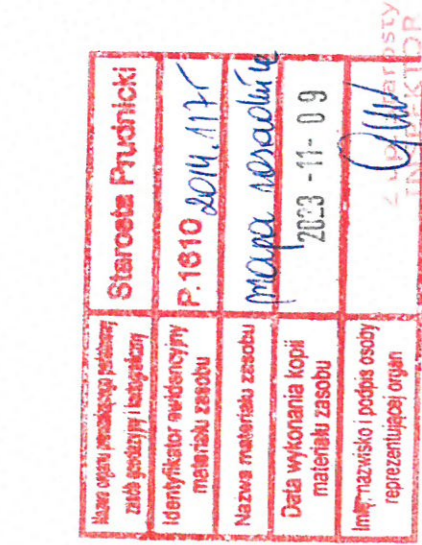 Nazwa organu prowadzącego państwowy
zasób geodezyjny i kartograficzny
Starosta Prudnicki
Identyfikator ewidencyjny
materiału zasobu
P.1610 2014.1175
Nazwa materiału zasobu
mapa zasadnicza
Data wykonania kopii
materiału zasobu
2023 -11- 09
Imię, nazwisko i podpis osoby
reprezentującej organ
z up. Starosty
INSPEKTOR